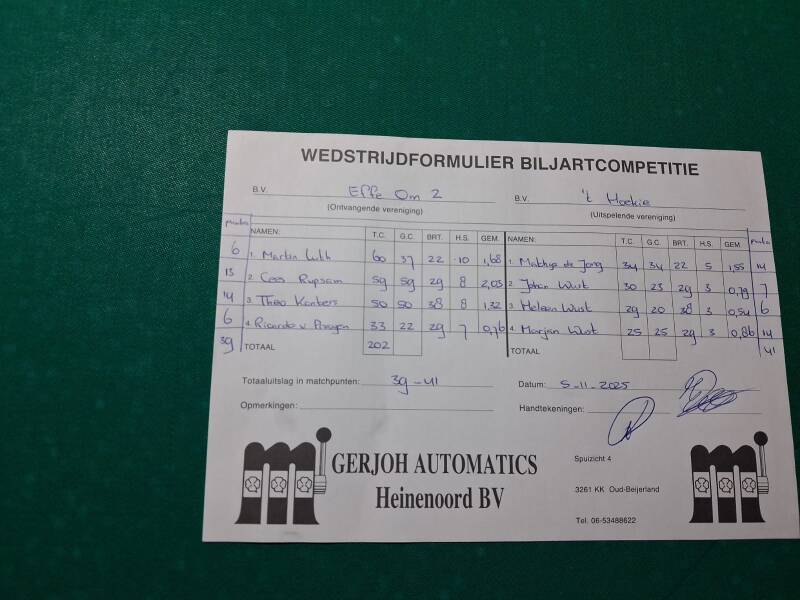 WEDSTRIJDFORMULIER BILJARTCOMPETITIE
B.V. Effe Om 2 B.V. 't Hoekie
(Ontvangende vereniging) (Uitspelende vereniging)
punten NAMEN: T.C. G.C. BRT. H.S. GEM. NAMEN: T.C. G.C. BRT. H.S. GEM. punten
6 1. Martin 60 37 22 10 1,68 1. Mathijs de Jong 34 34 22 5 1,55 14
13 2 Cees Rupsam 59 59 29 8 2,03 2. Johan Wust 30 23 29 3 0,79 7
14 3 Theo Konbers 50 50 38 8 1,32 3 Heleen Wust 29 20 38 3 0,54 6
6 4 Ricardo v 33 22 29 7 0,76 4 Marjan Wust 25 25 29 3 0,86 14
39 TOTAAL 202 TOTAAL 41
Totaaluitslag in matchpunten: 39 - 41 Datum: 5-11-2025
Opmerkingen: Handtekeningen:
GERJOH AUTOMATICS
Heinenoord BV
Spuizicht 4
3261 KK Oud-Beijerland
Tel. 06-53488622